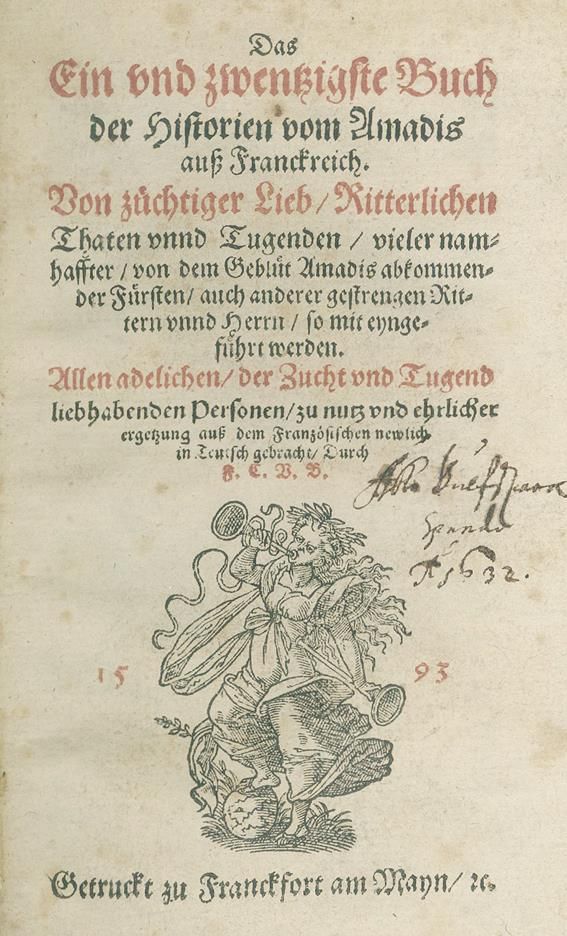 Das
Ein vnd zwentzigste Buch
der Historien vom Amadis
auß Franckreich.
Von züchtiger Lieb / Ritterlichen
Thaten vnnd Tugenden / vieler nam⸗
haffter / von dem Geblüt Amadis abkommen⸗
der Fürsten / auch anderer gestrengen Rit⸗
tern vnnd Herrn / so mit eynge⸗
führt werden.
Allen adelichen / der Zucht vnd Tugend
liebhabenden Personen / zu nutz vnd ehrlicher
ergetzung auß dem Französischen newlich
in Teutsch gebracht / Durch
F. C. V. B.
1632.
15 93
Getruckt zu Franckfort am Mayn / ꝛc.